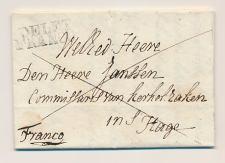 DELFT
FRANCO
Welled Heere
Den Heere Janssen
Commissaris van kerkel. zaken
in s' Hage
Franco